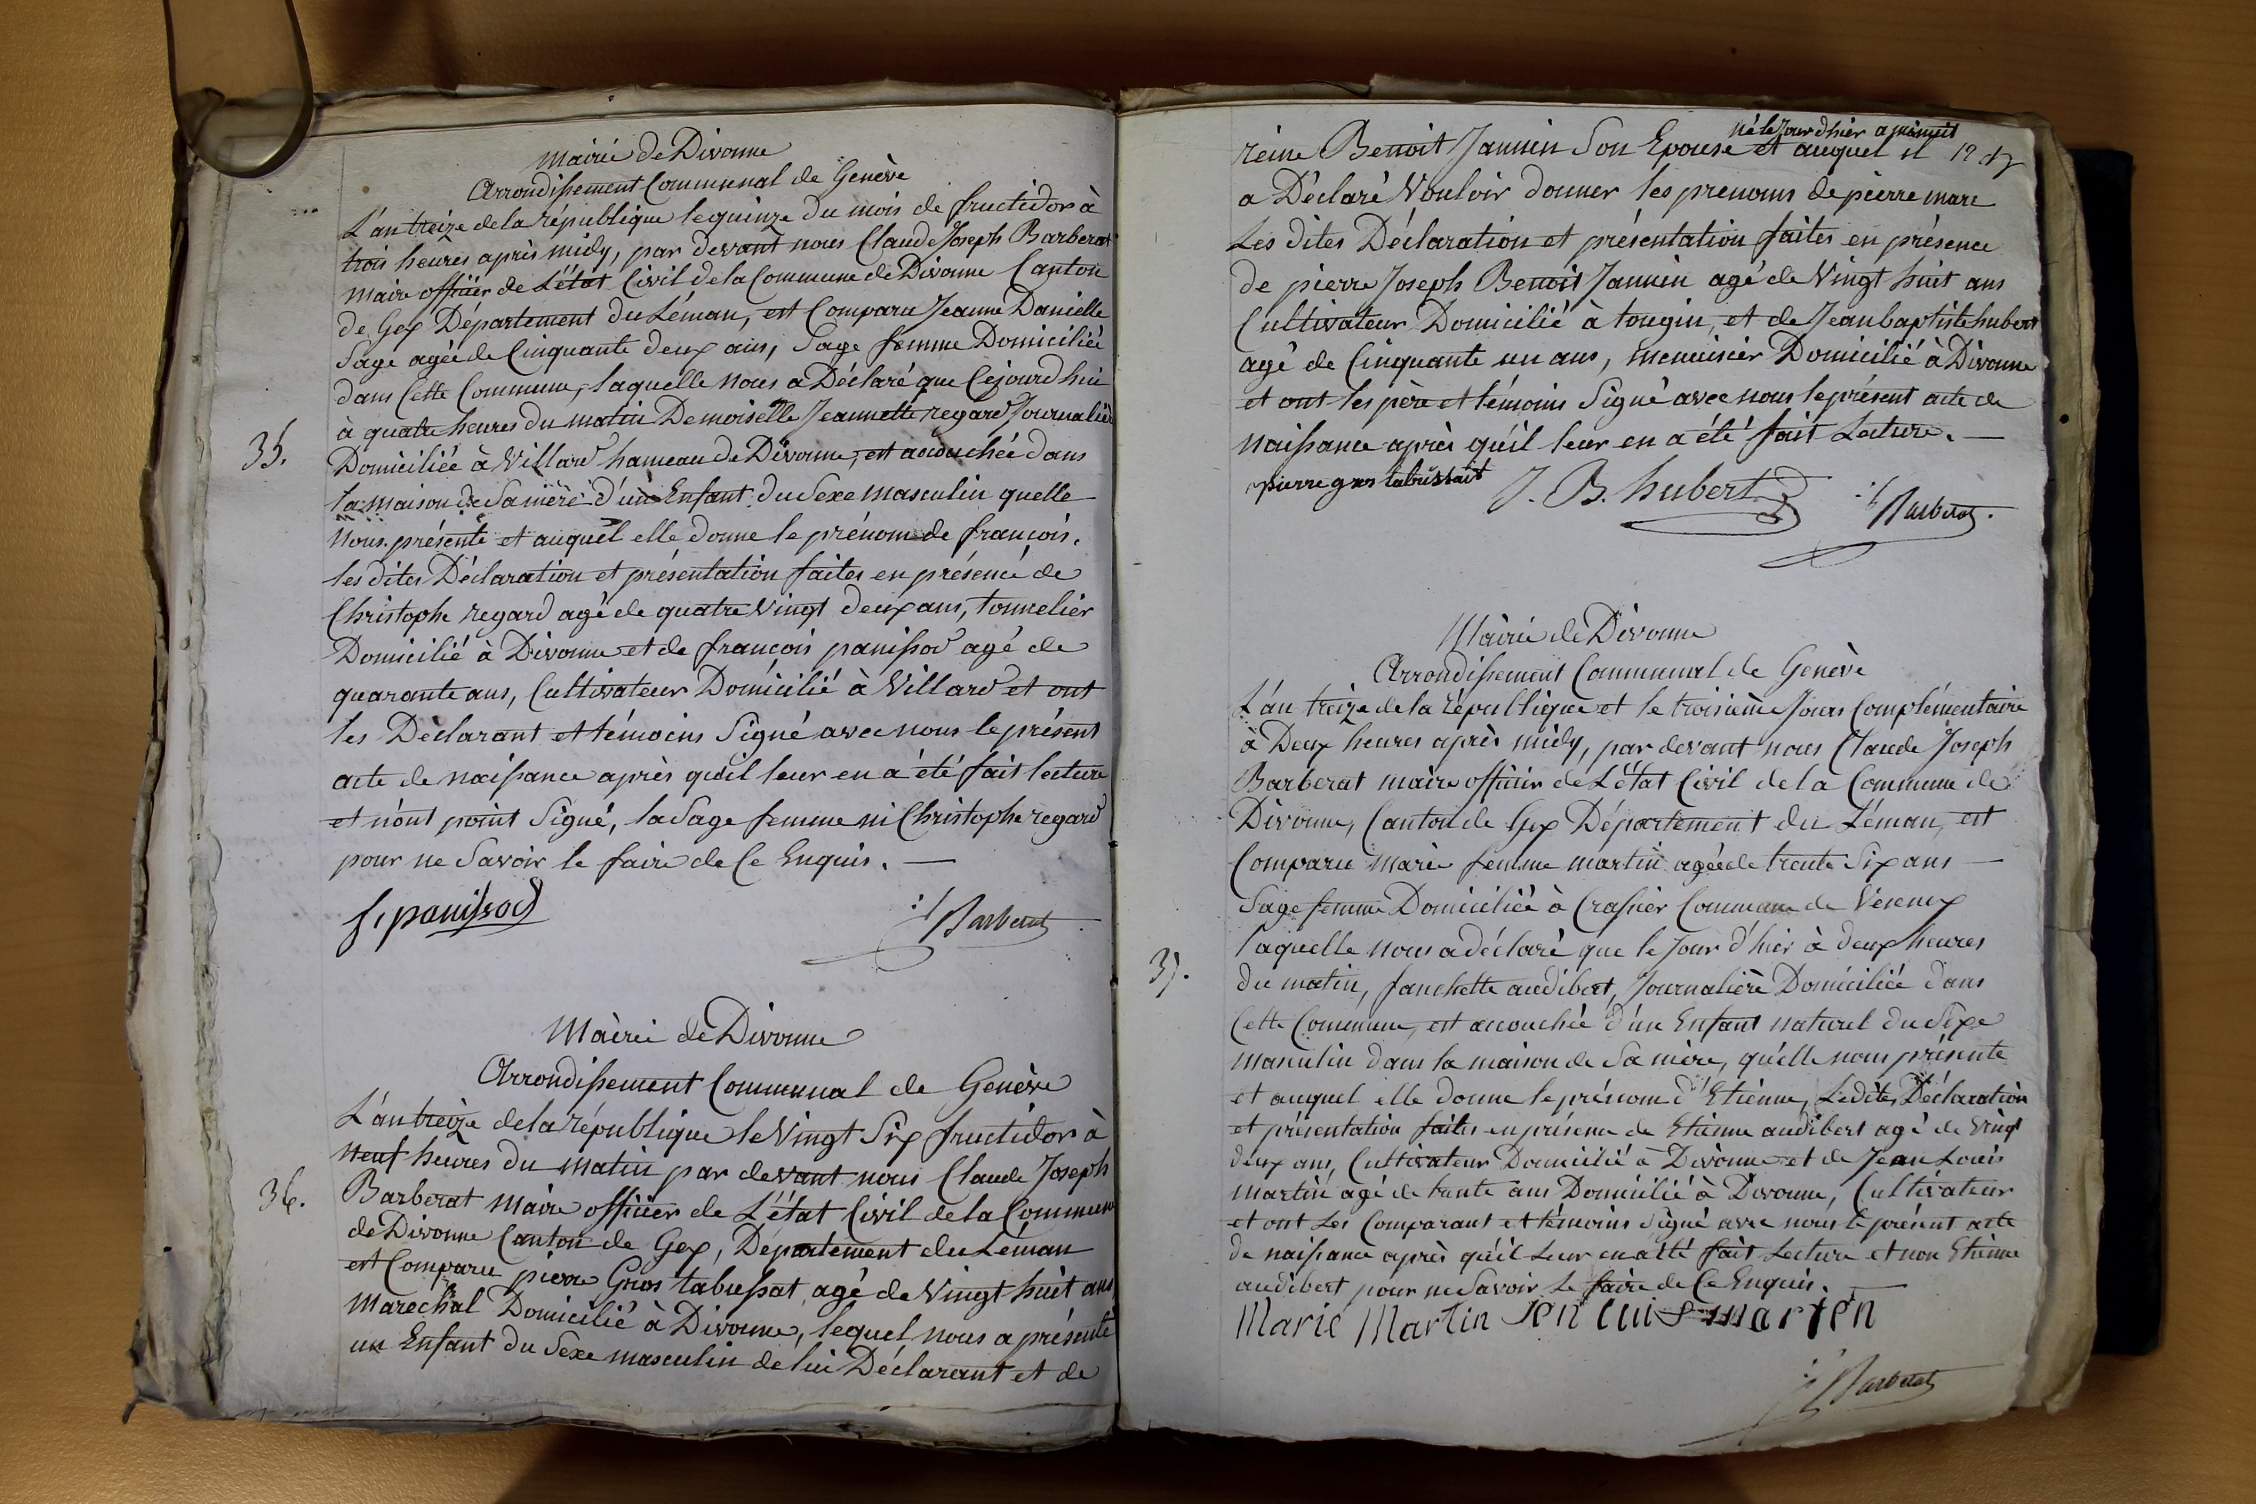 Mairie de Divonne
Arrondissement Communal de Genève
L'an treize de la république le quinze du mois de fructidor à
trois heures après midy, par devant nous Claude Joseph Barberat
maire officier de L'état Civil de la Commune de Divonne Canton
de Gex Département du Léman, est Comparu Jeanne Danielle
Sage agée de Cinquante deux ans, Sage femme Domiciliée
dans Cette Commune, laquelle nous a Déclaré que Cejourd'hui
à quatre heures du matin Demoiselle Jeannette regard, Journalière
35.
Domiciliée à Villard hameau de Divonne, est accouchée dans
la maison de Sa mère d'un Enfant du Sexe masculin quelle
nous présente et auquel elle donne le prénom de françois.
les dites Déclaration et présentation faites en présence de
Christophe regard agé de quatre Vingt deux ans, tonnelier
Domicilié à Divonne et de françois panissod agé de
quarante ans, Cultivateur Domicilié à Villard et ont
les Déclarant et témoins Signé avec nous le présent
acte de naissance après qu'il leur en a été fait lecture
et n'ont point Signé, la Sage femme ni Christophe regard
pour ne Savoir le faire de Ce Enquis. —
f. panissod
Barberat
Mairie de Divonne
Arrondissement Communal de Genève
L'an treize de la république le Vingt Six fructidor à
neuf heures du matin par devant nous Claude Joseph
36.
Barberat Maire officier de L'état Civil de la Commune
de Divonne Canton de Gex, Département du Léman
est Comparu pierre Gros tabussat agé de Vingt huit ans
Marechal Domicilié à Divonne, lequel nous a présenté
un Enfant du Sexe masculin de lui Déclarant et de
né le Jour d'hier a minuit
reine Benoit Jannin Son Epouse et auquel il
a Déclaré Vouloir donner les prenoms de pierre marc
Les dites Déclaration et présentation faites en présence
de pierre Joseph Benoit Jannin agé de Vingt huit ans
Cultivateur Domicilié à tougin, et de Jean baptiste hubert
agé de Cinquante un ans, menuisier Domicilié à Divonne
et ont les père et témoins Signé avec nous le présent acte de
naissance après qu'il leur en a été fait Lecture. —
pierre gros tabussait
J. B. hubert
Barberat.
Mairie de Divonne
Arrondissement Communal de Genève
L'an treize de la république et le troisième Jours Complémentaire
à Deux heures après midy, par devant nous Claude Joseph
Barberat maire officier de L'état Civil de la Commune de
Divonne, Canton de Gex Département du Léman, est
Comparu Marie femme martin agée de trente Six ans —
Sage femme Domiciliée à Crassier Commune de Vesenex
laquelle nous a déclaré que le Jour d'hier à deux heures
37.
du matin, fanchette audibert, Journalière Domiciliée dans
Cette Commune, est accouchée d'un Enfant naturel du Sexe
masculin dans la maison de Sa mère, qu'elle nous présente
et auquel elle donne le prénom d'Etienne, Ledites Déclaration
et présentation faites en présence de Etienne audibert agé de Vingt
deux ans, Cultivateur Domicilié à Divonne et de Jean Louis
Martin agé de trente ans Domicilié à Divonne, Cultivateur
et ont Les Comparant et témoins Signé avec nous le présent acte
de naissance après qu'il Leur en a été fait Lecture et non Etienne
audibert pour ne Savoir le faire de Ce Enquis. —
Marie Martin Jen luis martin
Barberat